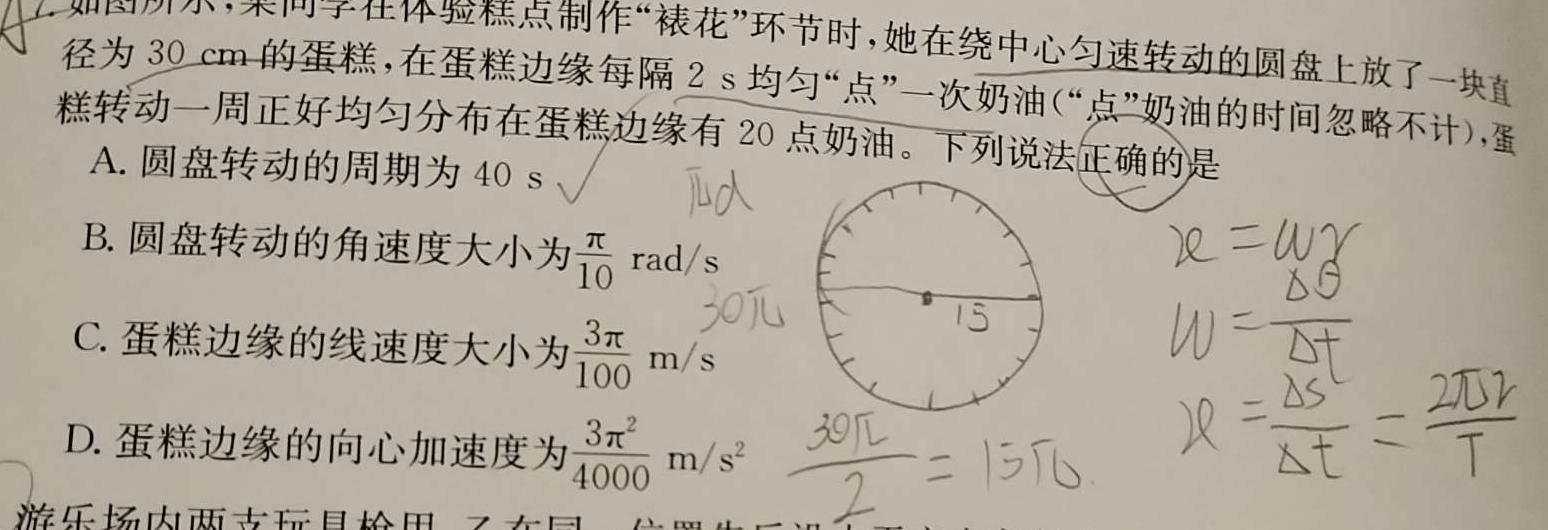 如图所示,某同学在体验糕点制作“裱花”环节时,她在绕中心匀速转动的圆盘上放了一块直
径为 30 cm 的蛋糕,在蛋糕边缘每隔 2 s 均匀“点”一次奶油(“点”奶油的时间忽略不计),蛋
糕转动一周正好均匀分布在蛋糕边缘有 20 点奶油。下列说法正确的是
A. 圆盘转动的周期为 40 s √
πd
B. 圆盘转动的角速度大小为 π/10 rad/s
30π
C. 蛋糕边缘的线速度大小为 3π/100 m/s
D. 蛋糕边缘的向心加速度为 3π²/4000 m/s²
15
30π/2 = 15π
v = ωr
ω = Δθ/Δt
v = Δs/Δt = 2πr/T
游乐场内两支玩具枪甲